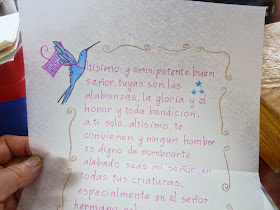 Altísimo y omnipotente buen
señor, tuyas son las
alabanzas, la gloria y el
honor y toda bendición,
a ti solo, altísimo, te
convienen y ningún hombre
es digno de nombrarte
alabado seas mi señor, en
todas tus criaturas,
especialmente en el señor
hermano sol